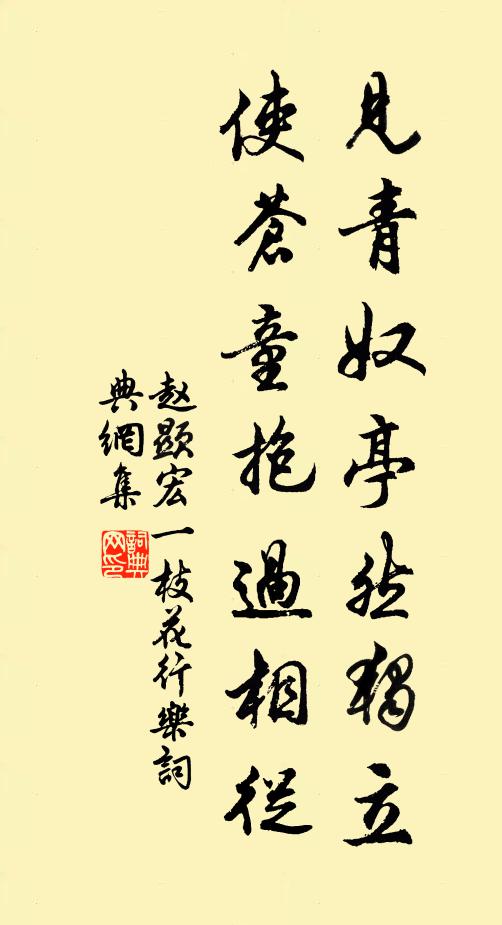 見青奴亭然獨立
使蒼童抱過相從
赵顯宏一枝花行樂詞
典網集
詞典网印